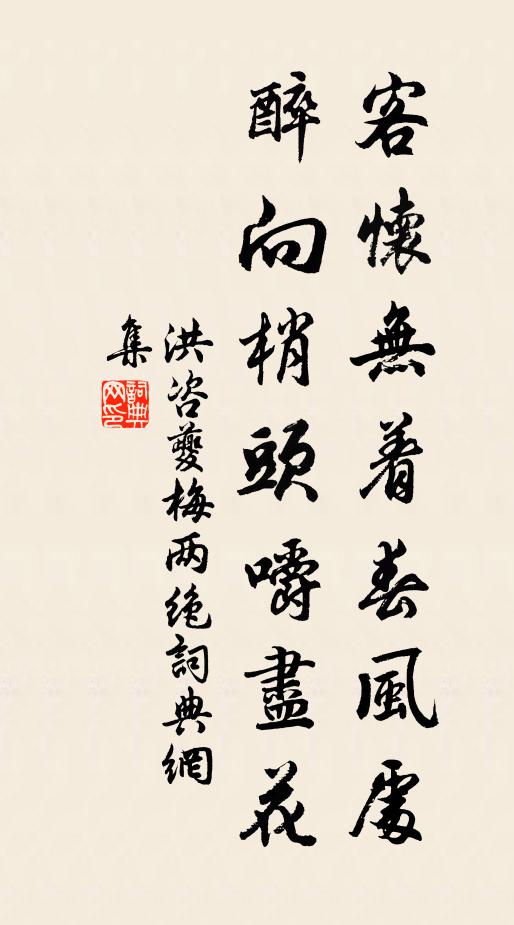 客懷無着春風處
醉向梢頭嚼盡花
洪咨夔梅两绝詞典網
集
詞典
网印